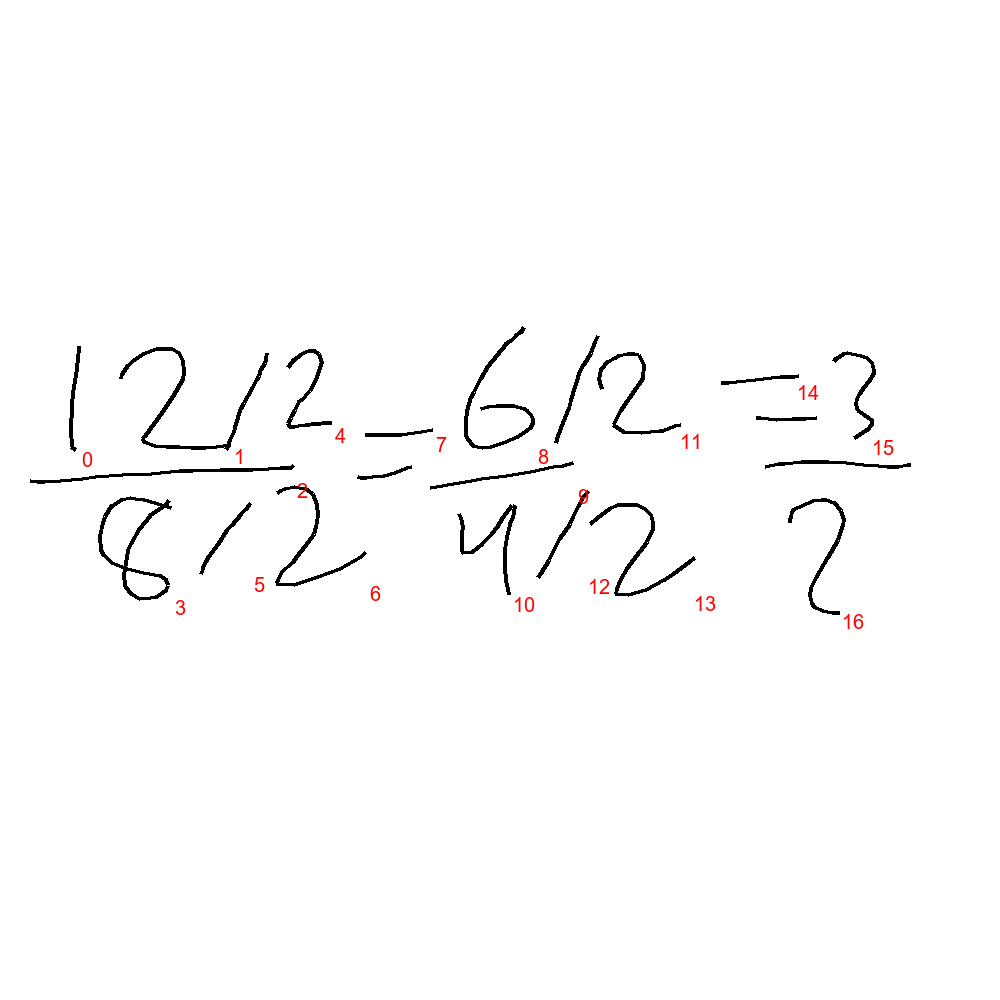 12/2 = 6/2 = 3
8/2 4/2 2
0 1 2 3 4 5 6 7 8 9 10 11 12 13 14 15 16